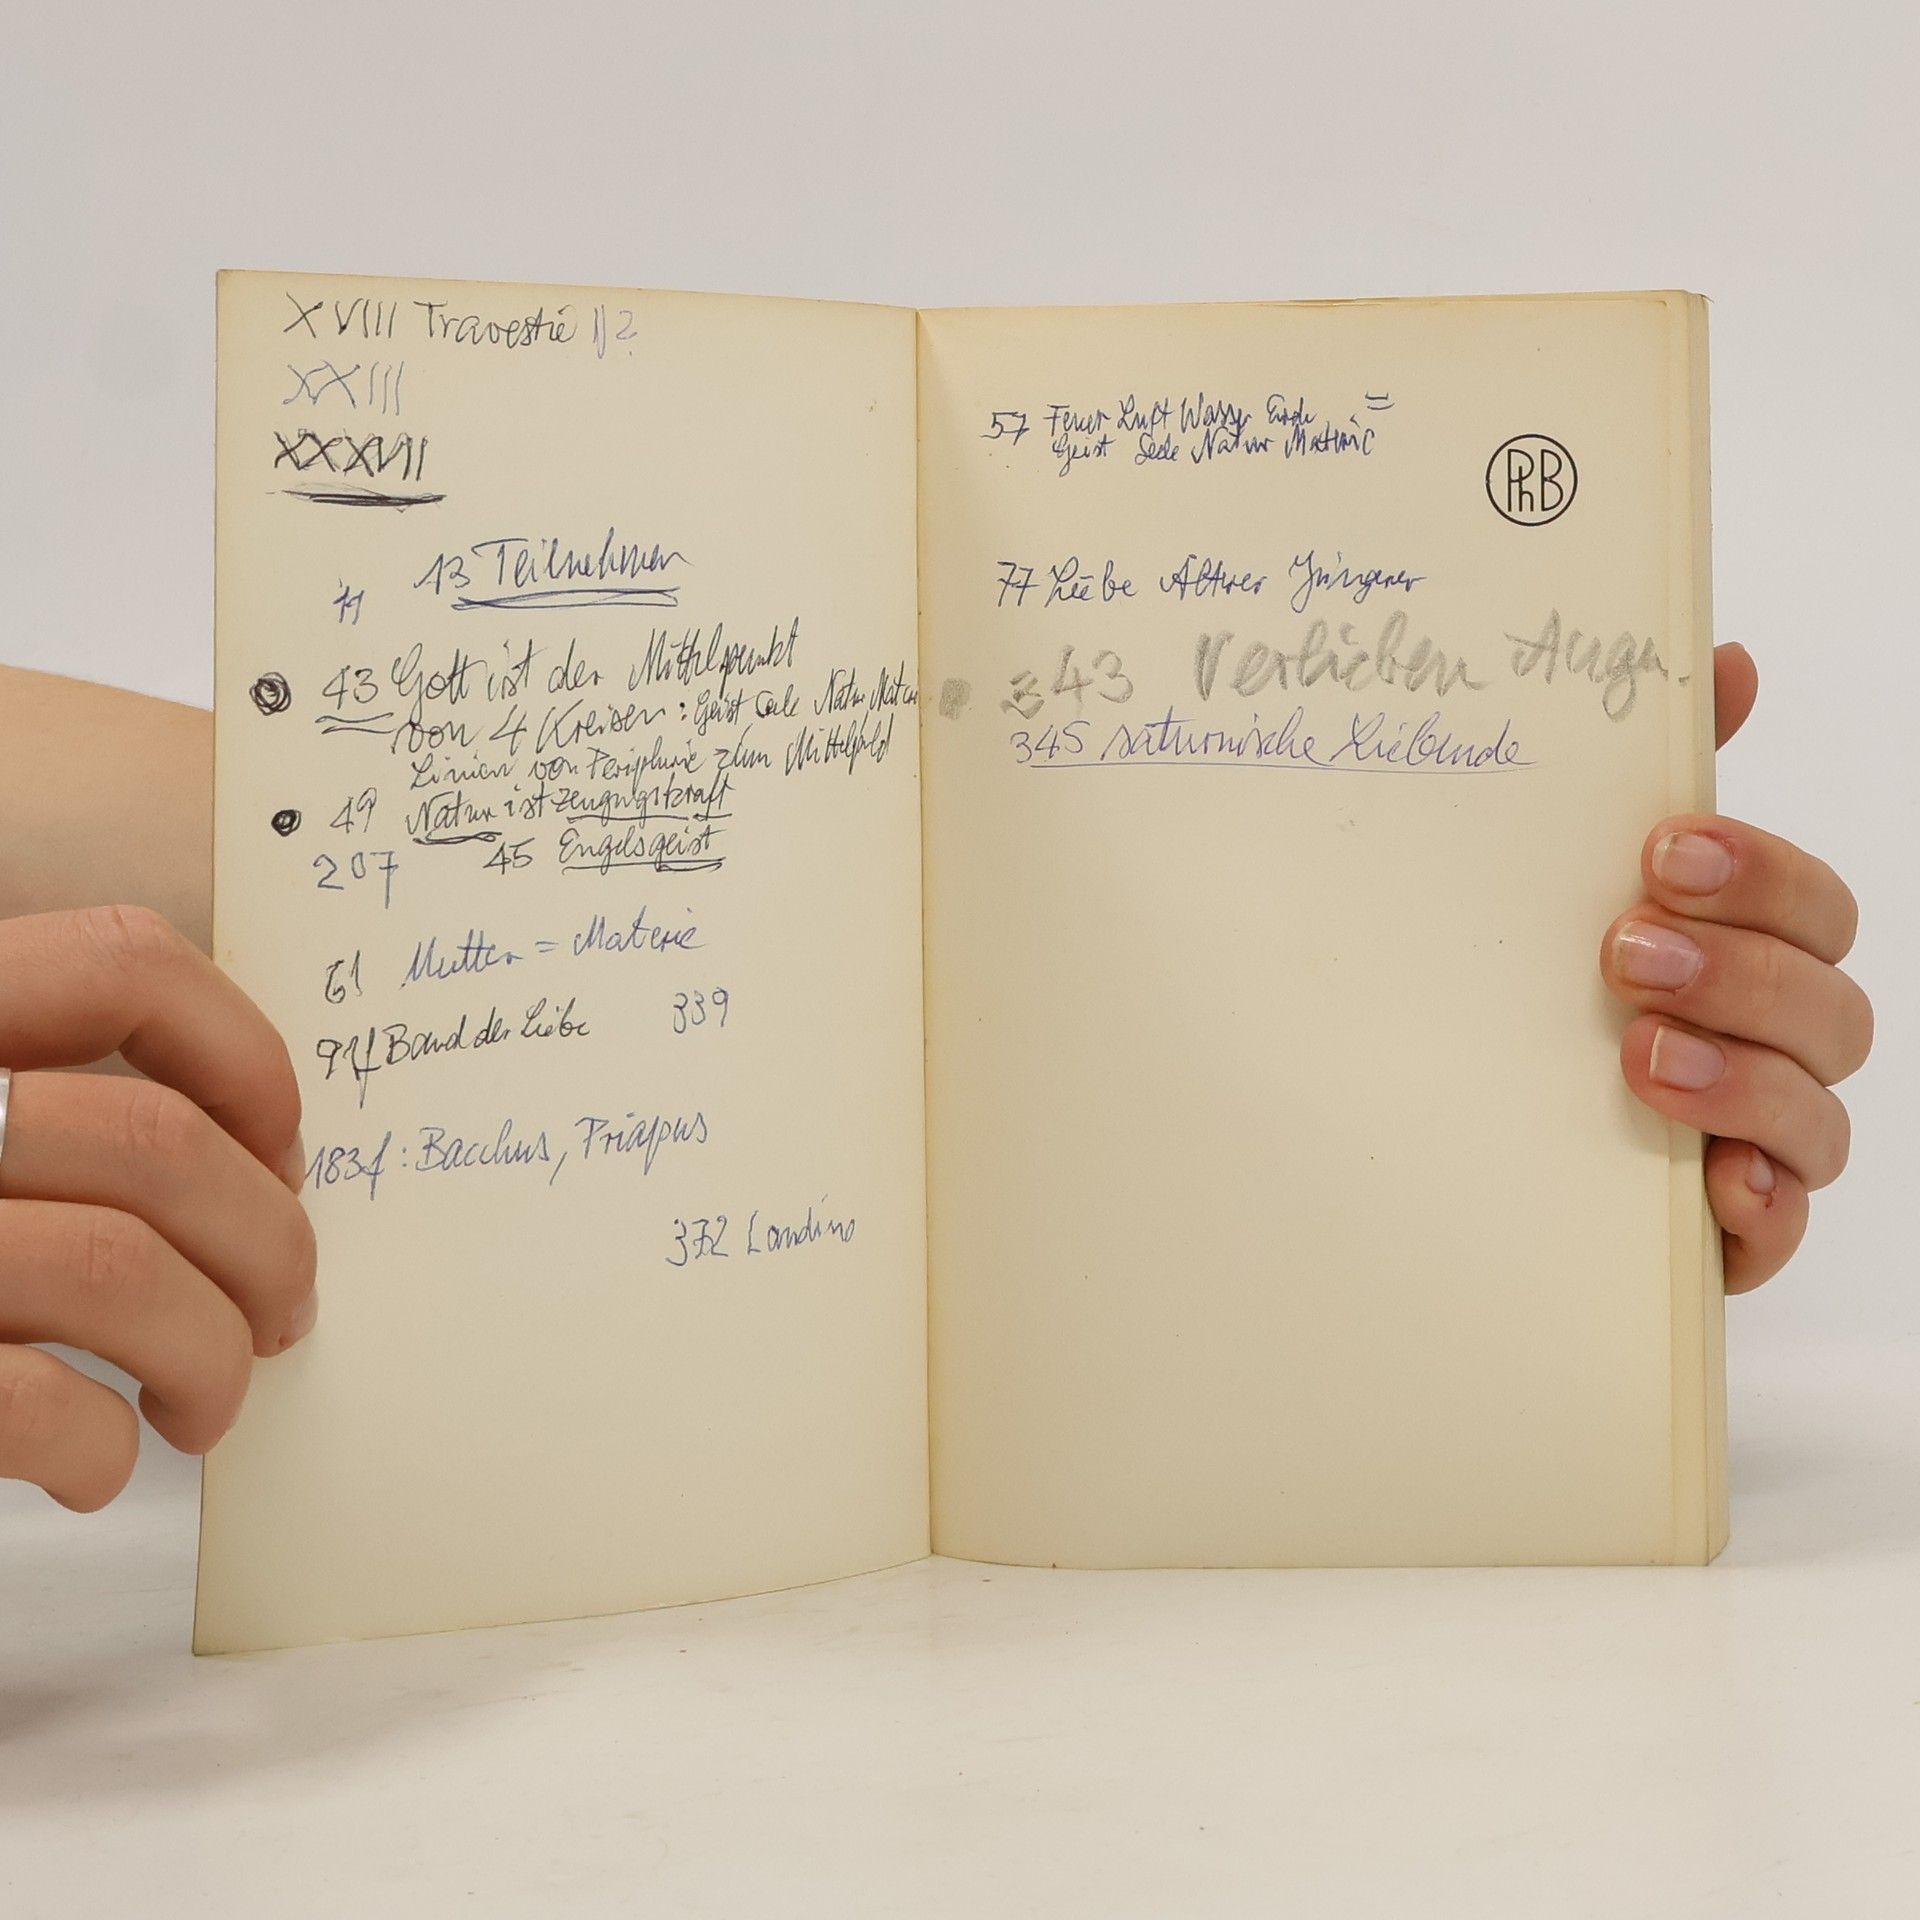 XVIII Travestie
XXIII
XXXVII
13 Teilnehmer
11
43 Gott ist der Mittelpunkt
von 4 Kreisen: Geist Seele Natur Materie
Linien von Peripherie zum
49 Natur ist Zeugungskraft
207 45 Engelsgeist
51 Mutter = Materie
91f Band der Liebe 339
183f: Bacchus, Priapus
372 Landino
57 Feuer Luft Wasser Erde =
Geist Seele Natur Materie
PhB
77 Liebe Älterer Jüngerer
43 Verlieben Auge
345 saturnische Liebende